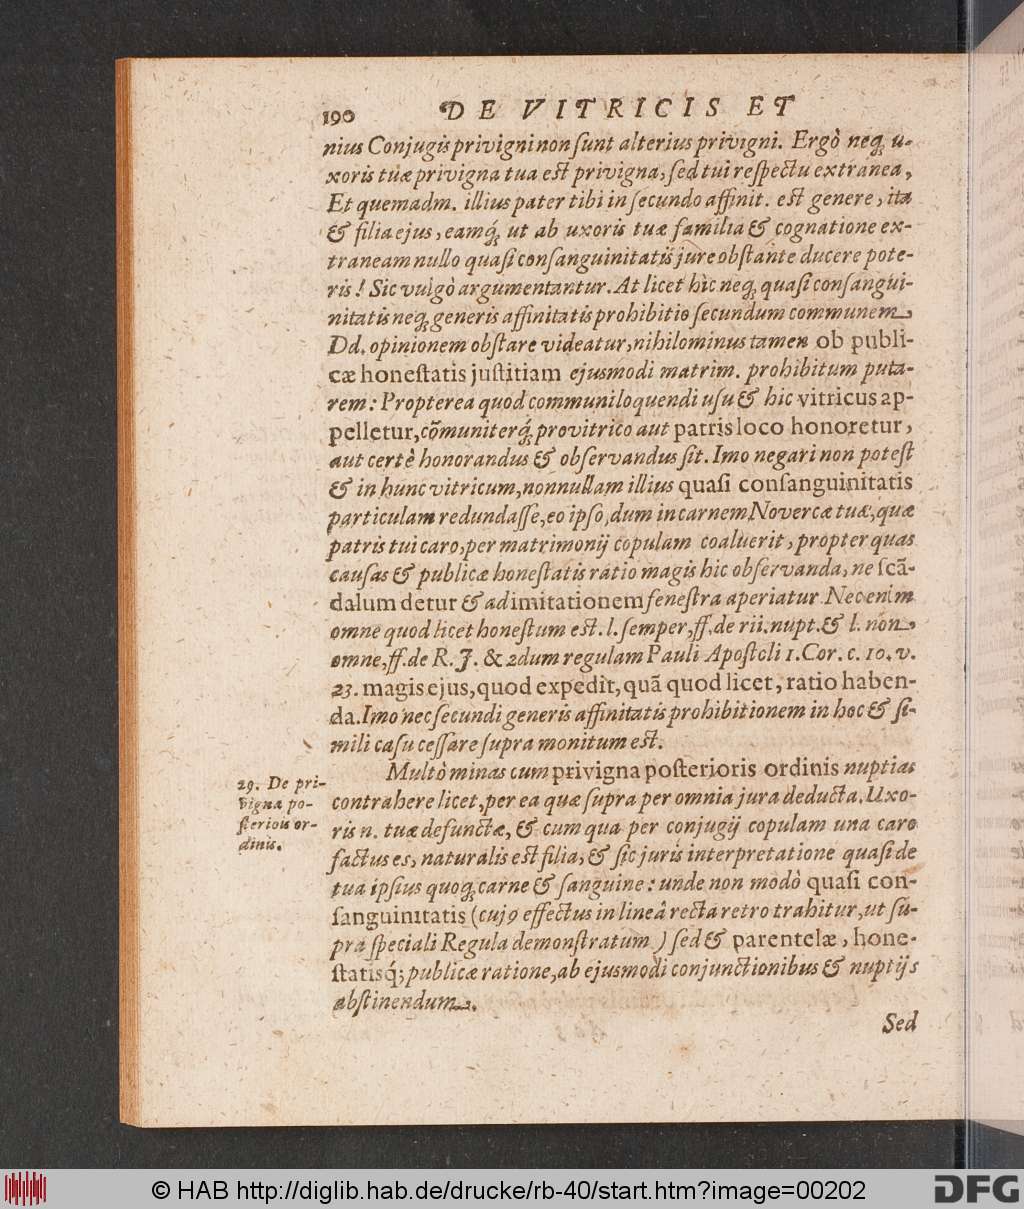 190 DE VITRICIS ET
nius Conjugis privigni non ſunt alterius privigni. Ergò neq́; u-
xoris tuæ privigna tua eſt privigna, ſed tui reſpectu extranea,
Et quemadm. illius pater tibi in ſecundo affinit. eſt genere, ita
& filia ejus, eamq́; ut ab uxoris tuæ familia & cognatione ex-
traneam nullo quaſi conſanguinitatis jure obſtante ducere pote-
ris! Sic vulgò argumentantur. At licet hîc neq; quaſi conſangui-
nitatis neq; generis affinitatis prohibitio ſecundum communem
Dd. opinionem obſtare videatur, nihilominus tamen ob publi-
cæ honeſtatis juſtitiam ejusmodi matrim. prohibitum puta-
rem: Propterea quod communi loquendi uſu & hic vitricus ap-
pelletur, cõmuniterq́; pro vitrico aut patris loco honoretur,
aut certè honorandus & obſervandus ſit. Imo negari non poteſt
& in hunc vitricum, nonnullam illius quaſi conſanguinitatis
particulam redundaſſe, eo ipſo, dum in carnem Novercæ tuæ, quæ
patris tui caro, per matrimonij copulam coaluerit, propter quas
cauſas & publicæ honeſtatis ratio magis hic obſervanda, ne ſcã-
dalum detur & ad imitationem feneſtra aperiatur. Nec enim
omne quod licet honeſtum eſt. l. ſemper, ff. de rit. nupt. & l. non
omne, ff. de R. J. & 2dum regulam Pauli Apoſtoli 1. Cor. c. 10. v.
23. magis ejus, quod expedit, quã quod licet, ratio haben-
da. Imo nec ſecundi generis affinitatis prohibitionem in hoc & ſi-
mili caſu ceſſare ſupra monitum eſt.
29. De pri-
vigna po-
ſterioris or-
dinis.
Multò minus cum privigna poſterioris ordinis nuptias
contrahere licet, per ea quæ ſupra per omnia jura deducta. Uxo-
ris n. tuæ defunctæ, & cum qua per conjugij copulam una caro
factus es, naturalis eſt filia, & ſic juris interpretatione quaſi de
tua ipſius quoq; carne & ſanguine: unde non modò quaſi con-
ſanguinitatis (cujꝰ effectus in lineâ recta retro trahitur, ut ſu-
pra ſpeciali Regula demonſtratum) ſed & parentelæ, hone-
ſtatisq́; publicæ ratione, ab ejusmodi conjunctionibus & nuptijs
abſtinendum.
Sed
© HAB http://diglib.hab.de/drucke/rb-40/start.htm?image=00202
DFG